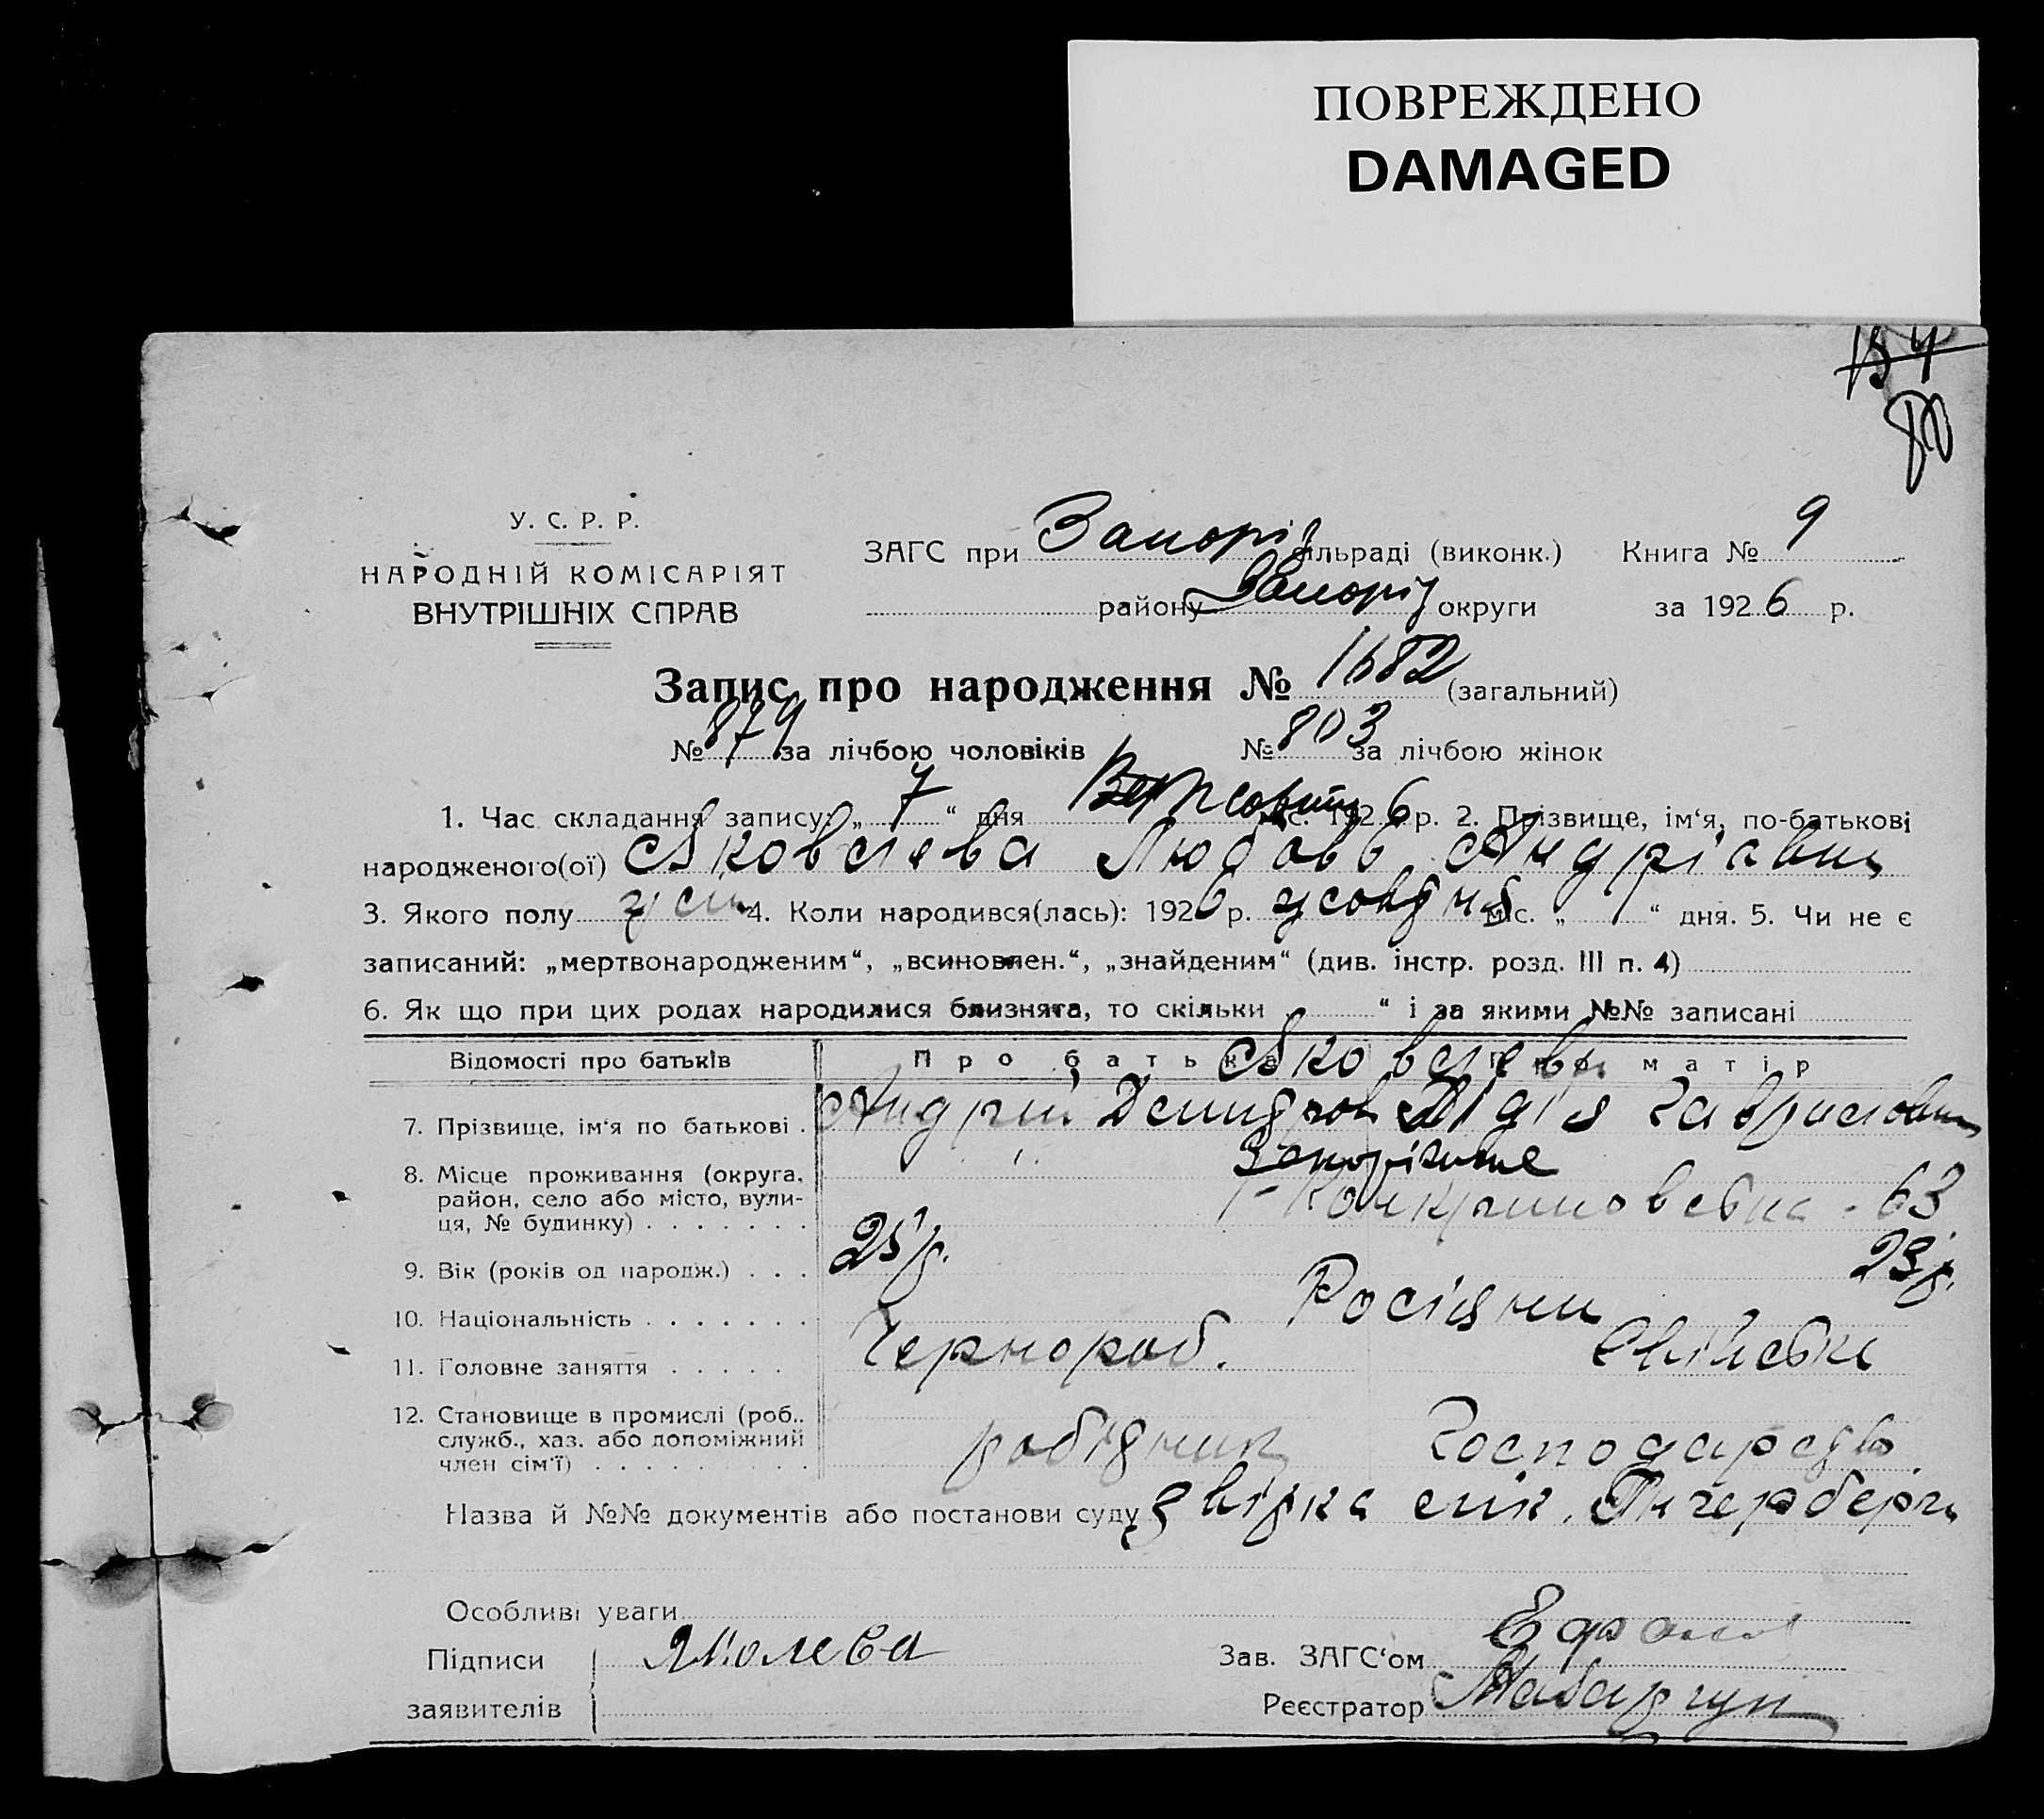 ПОВРЕЖДЕНО
DAMAGED
154
80
У. С. Р. Р.
НАРОДНІЙ КОМІСАРІЯТ
ВНУТРІШНІХ СПРАВ
ЗАГС при Запоріз сільраді (виконк.) Книга № 9
району Запоріз округи за 1926 р.
Запис про народження № 1682 (загальний)
№ 879 за лічбою чоловіків № 803 за лічбою жінок
1. Час складання запису: „ 7 “ дня міс. 1926 р. 2. Прізвище, ім‘я, по-батькові
народженого(ої) Яковлєва Любовь Андріівна
3. Якого полу 4. Коли народився(лась): 1926 р. жовтня міс. „ 1 “ дня. 5. Чи не є
записаний: „мертвонародженим“, „всиновлен.“, „знайденим“ (див. інстр. розд. III п. 4)
6. Як що при цих родах народилися близнята, то скільки “ і за якими №№ записані
Відомості про батьків Про батька Про матір
Яковлеви
7. Прізвище, ім‘я по батькові . Андрій Лідія Гавриловна
8. Місце проживання (округа, Запоріжже
район, село або місто, вули-
ця, № будинку) . . . . . . . 63
9. Вік (років од народж.) . . . 25 р. 23 р.
10. Національність . . . . . . . Росіяни
11. Головне заняття . . . . . Чернороб.
12. Становище в промислі (роб.. робітник Господарство
служб., хаз. або допоміжний
член сім‘ї) . . . . . . . . .
Назва й №№ документів або постанови суду
Особливі уваги
Підписи Зав. ЗАГС‘ом
заявителів Реєстратор